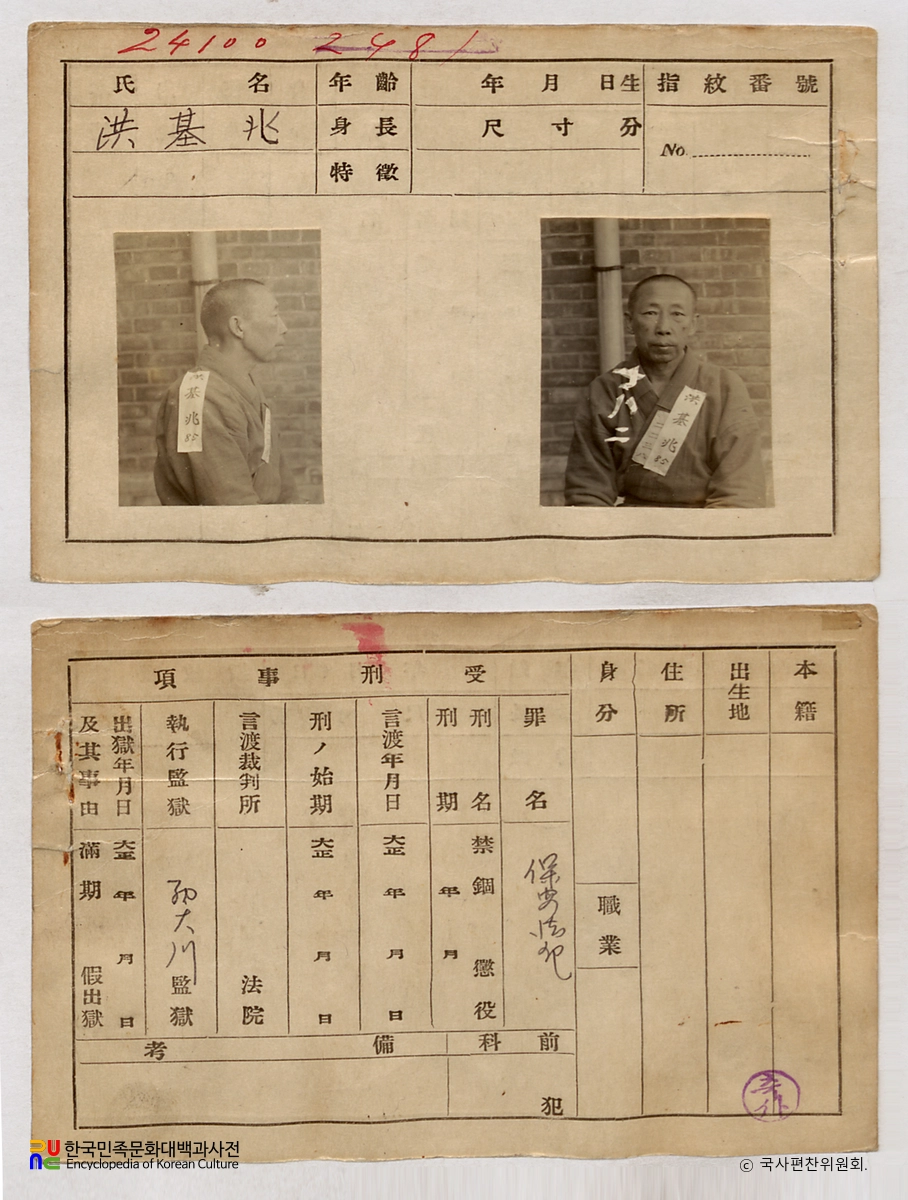 24100 2481
氏名 年齡 年月日生 指紋番號
洪基兆 身長 尺寸分 No.
特徵
洪基兆
85
洪基兆
85
十八二
本籍
出生地
住所
身分
職業
受刑事項
罪名
保安法犯
刑名 禁錮 懲役
刑期 年 月
言渡年月日 大正 年 月 日
刑ノ始期 大正 年 月 日
言渡裁判所 法院
執行監獄 監獄
出獄年月日 大正 年 月 日
及其事由 滿期 假出獄
前科 犯
備考
한국민족문화대백과사전
Encyclopedia of Korean Culture
© 국사편찬위원회.